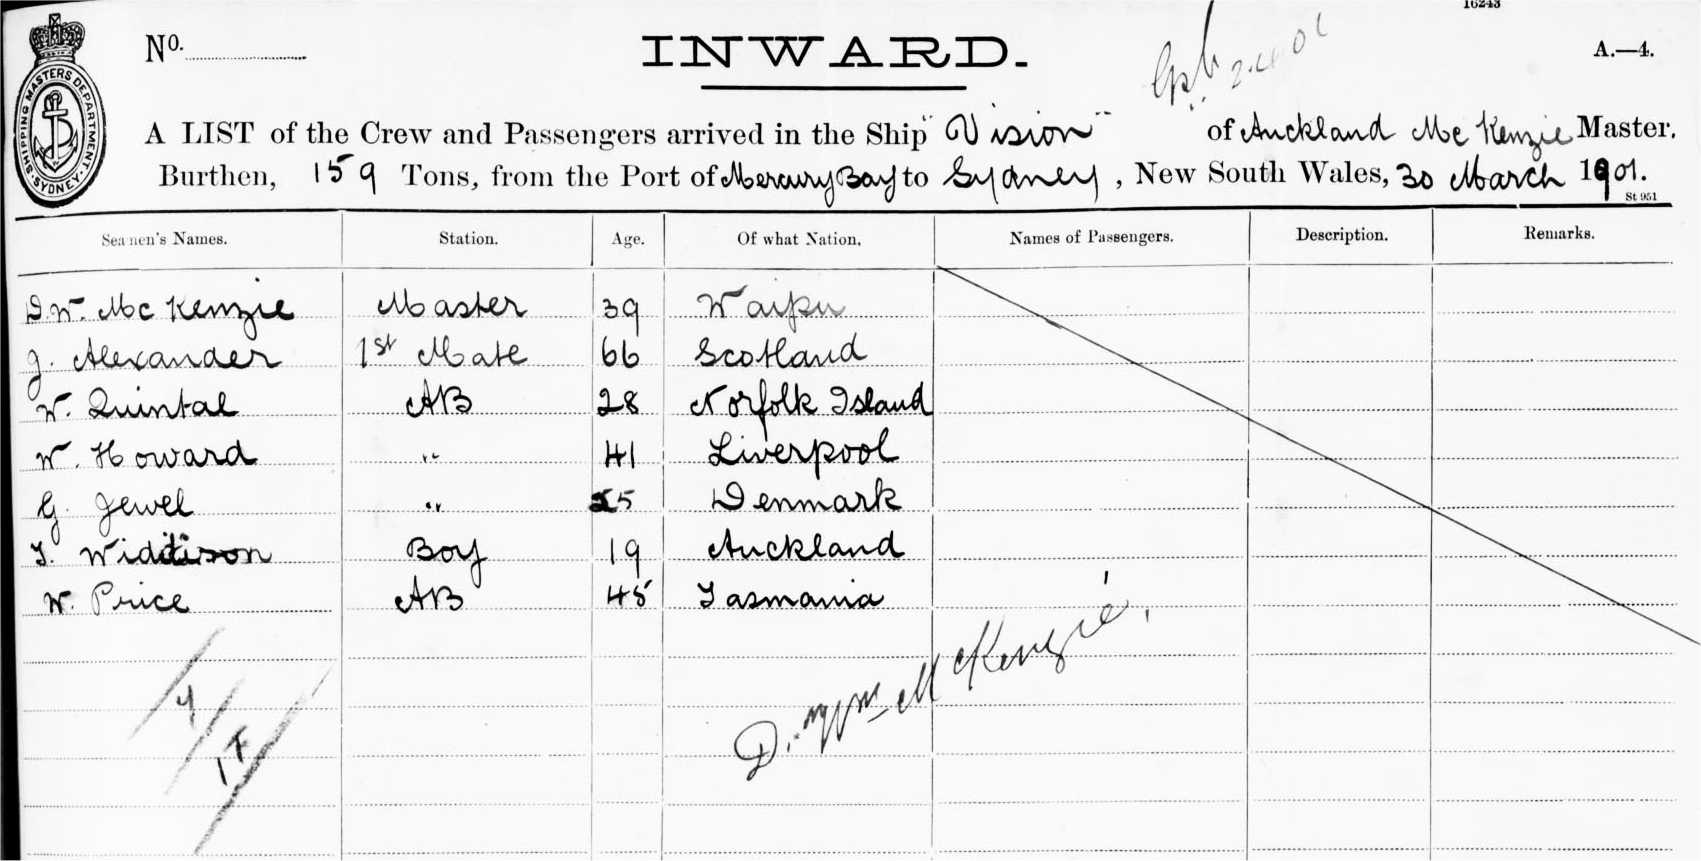 16243
No.
INWARD.
A.—4.
SHIPPING MASTERS DEPARTMENT. SYDNEY.
A LIST of the Crew and Passengers arrived in the Ship "Vision" of Auckland McKenzie Master,
Burthen, 159 Tons, from the Port of Mercury Bay to Sydney, New South Wales, 30 March 1901.
St 951
Seamen's Names. Station. Age. Of what Nation. Names of Passengers. Description. Remarks.
D.W. McKenzie Master 39 Waipu
J. Alexander 1st Mate 66 Scotland
W. Quintal AB 28 Norfolk Island
W. Howard " 41 Liverpool
G. Jewel " 25 Denmark
T. Widdison Boy 19 Auckland
W. Price AB 45 Tasmania
D. Wm McKenzie